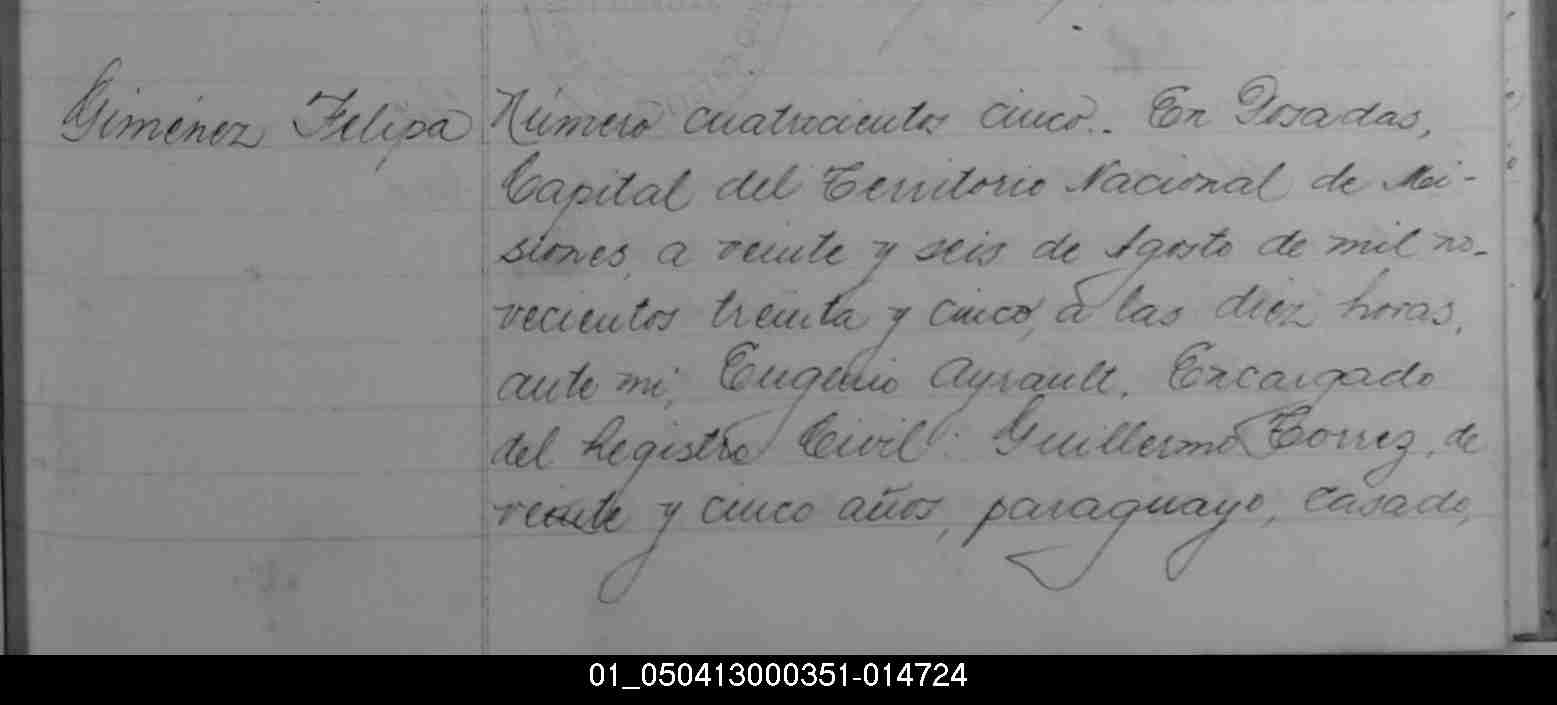 Giménez Felipa
Número cuatrocientos cinco. En Posadas,
Capital del Territorio Nacional de Mi-
siones, a veinte y seis de Agosto de mil no-
vecientos treinta y cinco, a las diez horas,
ante mi, Eugenio Ayrault, Encargado
del Registro Civil: Guillermo Torrez, de
veinte y cinco años, paraguayo, casado,
01_050413000351-014724